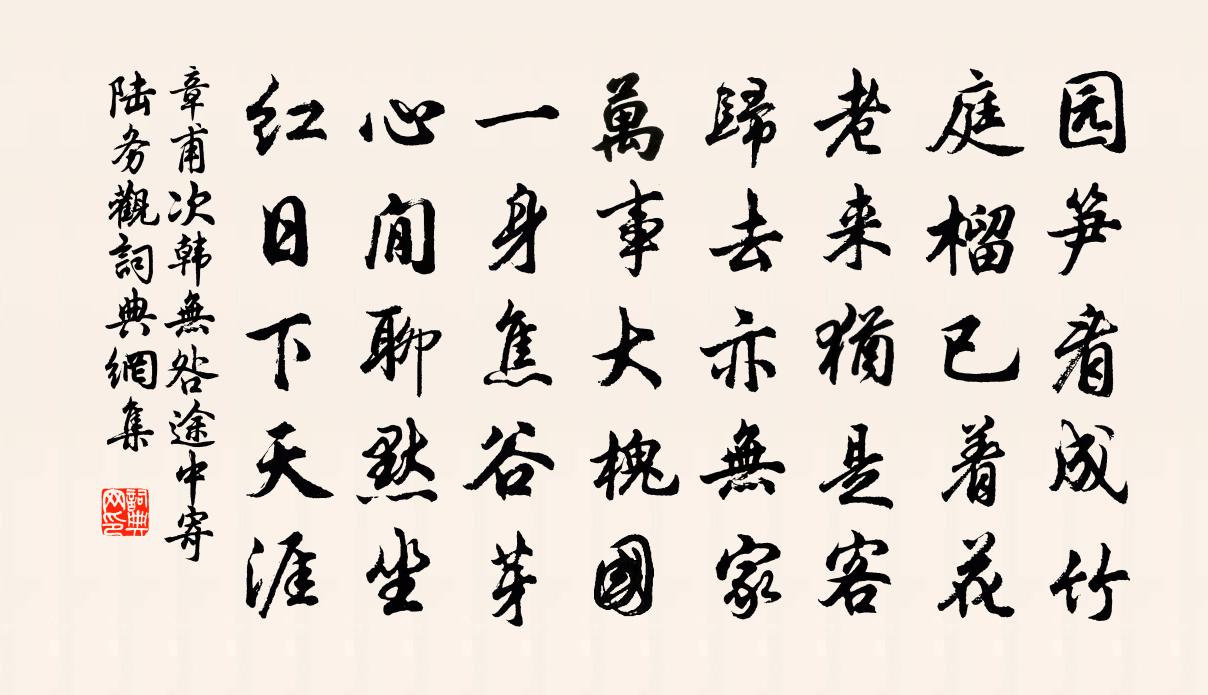 园笋看成竹
庭榴已着花
老来犹是客
歸去亦無家
萬事大槐國
一身焦谷芽
心閒聊默坐
红日下天涯
章甫次韩無咎途中寄
陆务觀詞典網集
詞典
网印